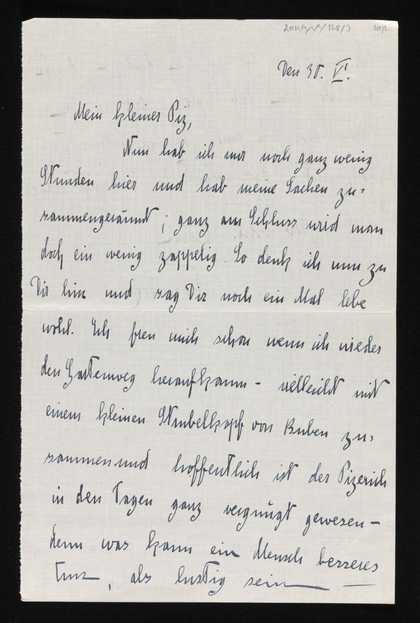 Den 30. VI.
Mein kleiner Piz,
Nun hab ich nur noch ganz wenig
Stunden hier und hab meine Sachen zu-
sammengeräumt; ganz am Schluss wird man
doch ein wenig zappelig. So denk ich nun zu
Dir hin und sag Dir noch ein Mal lebe
wohl. Ich freu mich schon wenn ich wieder
den Gartenweg heraufkomm - vielleicht mit
einem kleinen Strubelkopf von Buben zu-
sammen und hoffentlich ist der Pizerich
in den Tagen ganz vergnügt gewesen -
denn was kann ein Mensch besseres
tun, als lustig sein